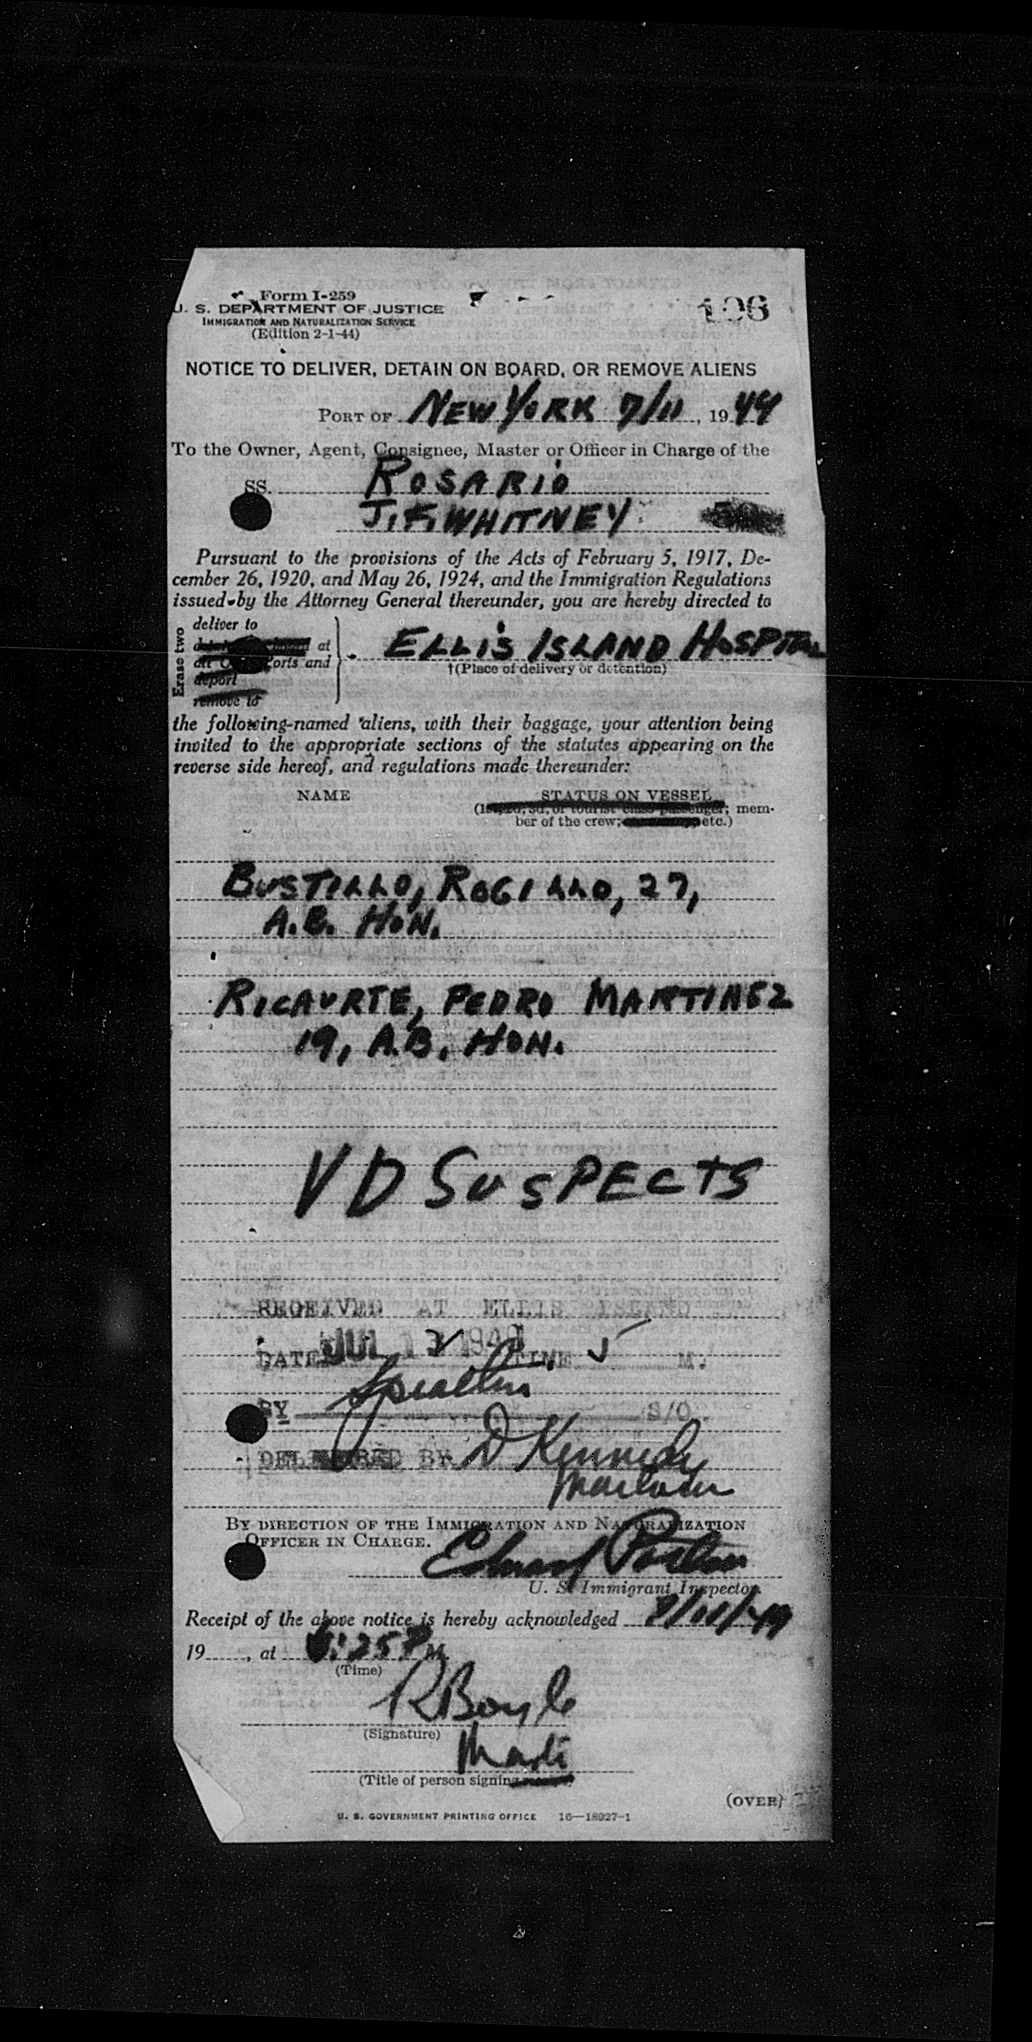 Form I-259
U. S. DEPARTMENT OF JUSTICE
IMMIGRATION AND NATURALIZATION SERVICE
(Edition 2-1-44)
106
NOTICE TO DELIVER, DETAIN ON BOARD, OR REMOVE ALIENS
PORT OF NEW YORK 7/11, 1949
To the Owner, Agent, Consignee, Master or Officer in Charge of the
SS. ROSARIO
J.F. WHITNEY
Pursuant to the provisions of the Acts of February 5, 1917, De-
cember 26, 1920, and May 26, 1924, and the Immigration Regulations
issued by the Attorney General thereunder, you are hereby directed to
Erase two
deliver to
at
orts and
deport
remove to
ELLIS ISLAND HOSPITAL
†(Place of delivery or detention)
the following-named aliens, with their baggage, your attention being
invited to the appropriate sections of the statutes appearing on the
reverse side hereof, and regulations made thereunder:
NAME
STATUS ON VESSEL
(1st, 2d, 3d, or tourist class passenger; mem-
ber of the crew; etc.)
BUSTILLO, ROGILLO, 27,
A.B. HON.
RICAURTE, PEDRO MARTINEZ
19, A.B. HON.
VD SUSPECTS
RECEIVED AT ELLIS ISLAND
DATE JUL 12 1949 TIME 5 M.
BY S/O.
DELIVERED BY D Kennedy
BY DIRECTION OF THE IMMIGRATION AND NATURALIZATION
OFFICER IN CHARGE.
Edward
U. S. Immigrant Inspector.
Receipt of the above notice is hereby acknowledged 7/11/49
19, at :25 P M.
(Time)
R Boyle
(Signature)
(Title of person signing receipt)
(OVER)
U. S. GOVERNMENT PRINTING OFFICE 16—18927-1